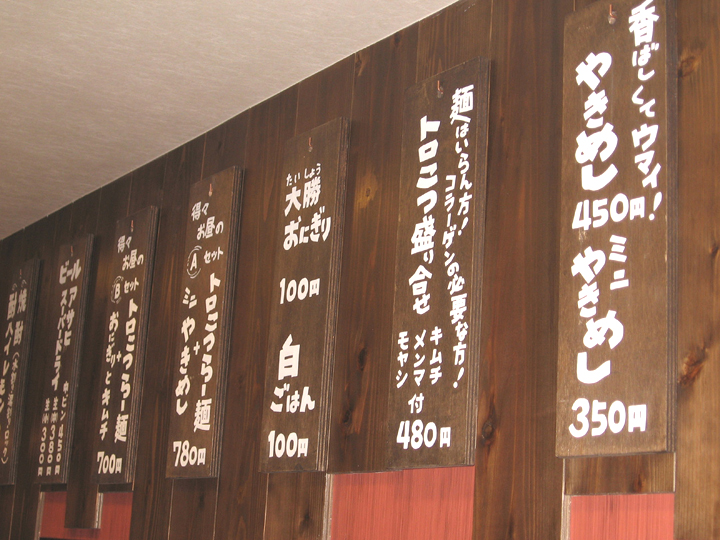 香ばしくてウマイ!
やきめし
450円
ミニ
やきめし
350円
麺はいらん方!
コラーゲンの必要な方!
トロこつ盛り合せ
キムチ
メンマ
モヤシ
付
480円
たいしょう
大勝
おにぎり
100円
白
ごはん
100円
得々
お昼の
Aセット
トロこつらー麺
+
ミニやきめし
780円
得々
お昼の
Bセット
トロこつらー麺
+
おにぎりとキムチ
700円
ビール
アサヒ
スーパードライ
中ビン450
生中380
焼酎
酎ハイ